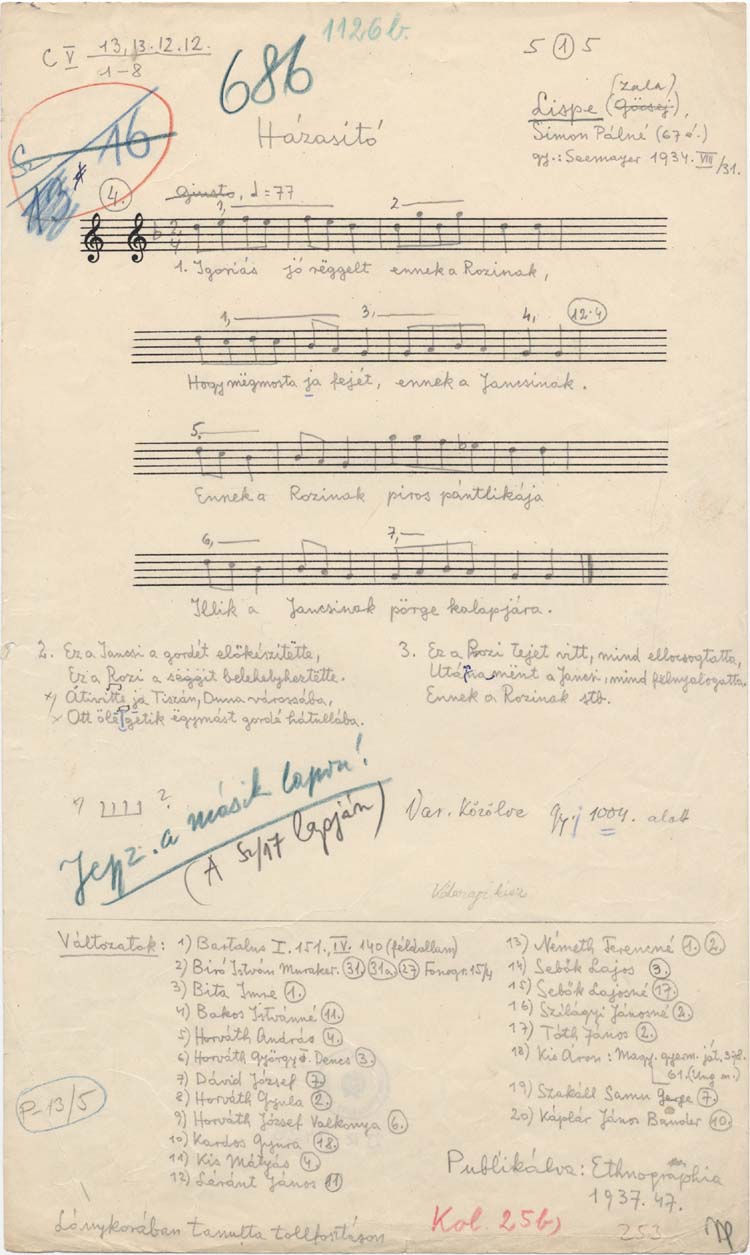 1126b.
C V 13, 13. 12. 12.
1-8
686
5 (1) 5
(Zala)
Lispe (Göcsej),
Simon Pálné (67 é.)
gy.: Seemayer 1934. VIII/31.
Sz 16
13
Házasító
4.
Giusto, ♩=77
1, 2
1. Jgoriás jó rëggelt ennek a Rozinak,
1, 3, 4, 12.4
Hogy mëgmosta ja fejét, ennek a Jancsinak.
5.
Ennek a Rozinak piros pántlikája
6, 7,
Illik a Jancsinak pörge kalapjára.
2. Ez a Jancsi a gordét előkészítëtte,
Ez a Rozi a sëggit belehelyheztëtte.
x) Átivitte ja Tiszán, Duna városába,
x Ott ölelgetik ëgymást gordé hátullába.
3. Ez a Rozi tejet vitt, mind ellocsogtatta,
Utánna mënt a Jancsi, mind félnyalogatta.
Ennek a Rozinak stb.
x) ?
Jegyz. a másik lapon!
(A Sz/17 lapján)
Var. Közölve gy.j 1004. alatt
Változatok: 1) Bartalus I. 151., IV. 140 (féldallam)
2) Biró István Muraker. 31 31a 27 Fonogr. 15/4
3) Bita Imre 1.
4) Bakos Istvánné 11.
5) Horváth András 4.
6) Horváth György Dencs 3.
7) Dávid József 7
8) Horváth Gyula 2.
9) Horváth József Valkonya 6.
10) Kardos Gyura 18.
11) Kis Mátyás 4.
12) Léránt János 11
13) Németh Ferencné 1. 2.
14) Sebők Lajos 3.
15) Sebők Lajosné 17.
16) Szilágyi Jánosné 2.
17) Tóth János 2.
18) Kis Áron: Magy. gyerm. ját. 378.
61. (Ung m.)
19) Szakáll Samu Gerge 7.
20) Káplár János Bander 10.
P-13/5
Publikálva: Ethnographia
1937. 47.
Lánykorában tanulta tollfosztáson
Kol. 25b,
253